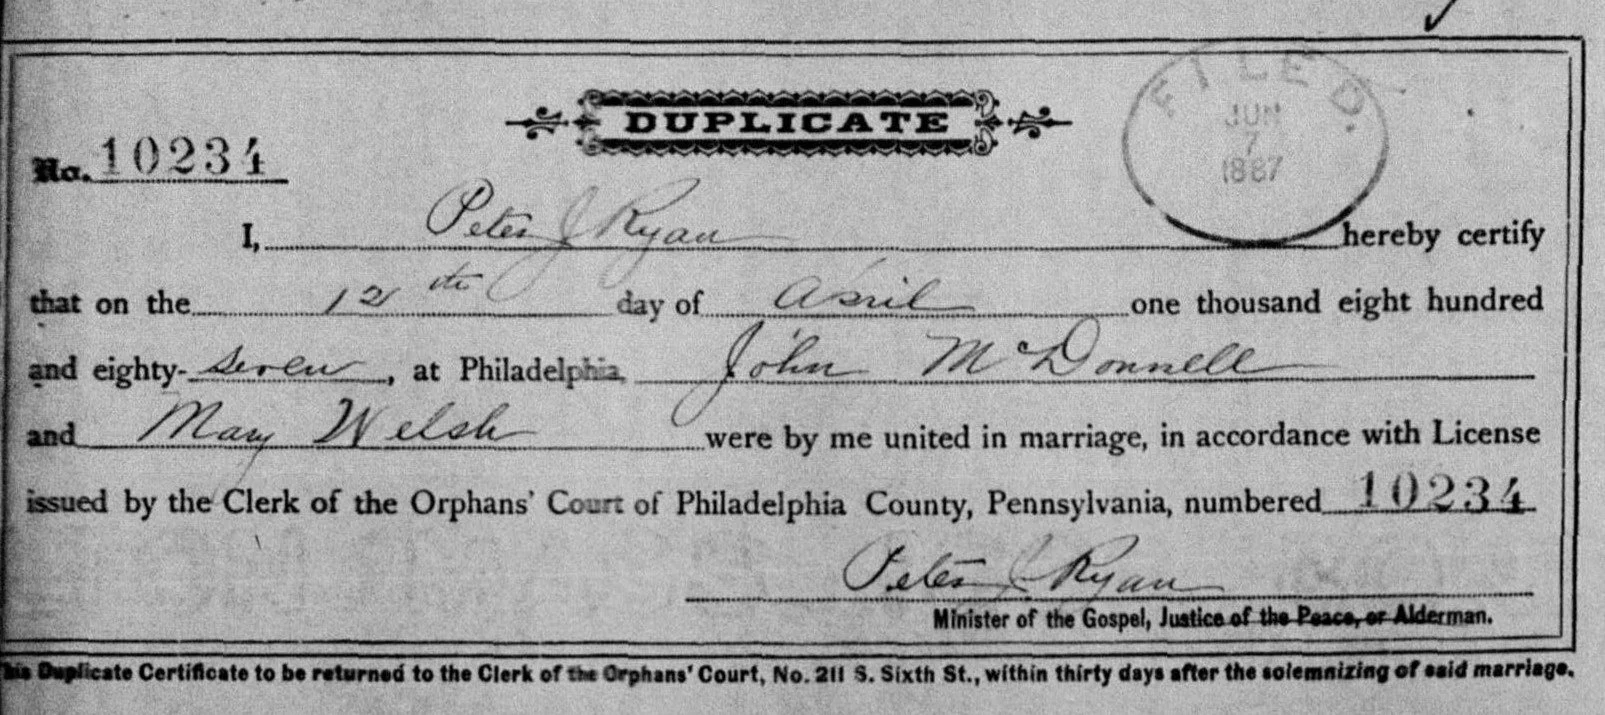 FILED.
JUN
7
1887
DUPLICATE
No. 10234
I, Peter J Ryan hereby certify
that on the 12th day of April one thousand eight hundred
and eighty-seven, at Philadelphia, John McDonnell
and Mary Welsh were by me united in marriage, in accordance with License
issued by the Clerk of the Orphans' Court of Philadelphia County, Pennsylvania, numbered 10234
Peter J Ryan
Minister of the Gospel, Justice of the Peace, or Alderman.
This Duplicate Certificate to be returned to the Clerk of the Orphans' Court, No. 211 S. Sixth St., within thirty days after the solemnizing of said marriage.